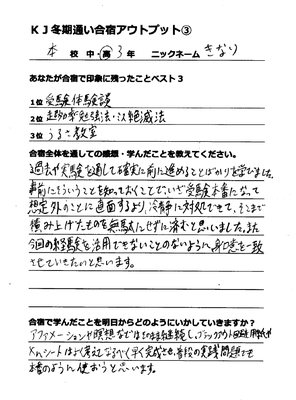 KJ冬期通い合宿アウトプット③
本 校 中・高 3年 ニックネーム きなり
あなたが合宿で印象に残ったことベスト3
1位 受験体験談
2位 超効率勉強法・以絶滅法
3位 うるさ教室
合宿全体を通しての感想・学んだことを教えてください。
過去や実験を通して確実に前に進めることばかりを学べました。
事前にそういうことを知っておくことでいざ受験本番になって
想定外のことに直面するより、冷静に対処できて、そこまで
積み上げたものを無駄にせずに済むと思いました。また
今回の経験を活用できないことのないように、身と意を一致
させていきたいと思います。
合宿で学んだことを明日からどのようにいかしていきますか？
アファメーションや瞑想などはそのまま継続し、ブラックアウト回避
Xmシートはよく考えてなるべく早く完成させ、普段の実践問題でも
本番のように使おうと思います。